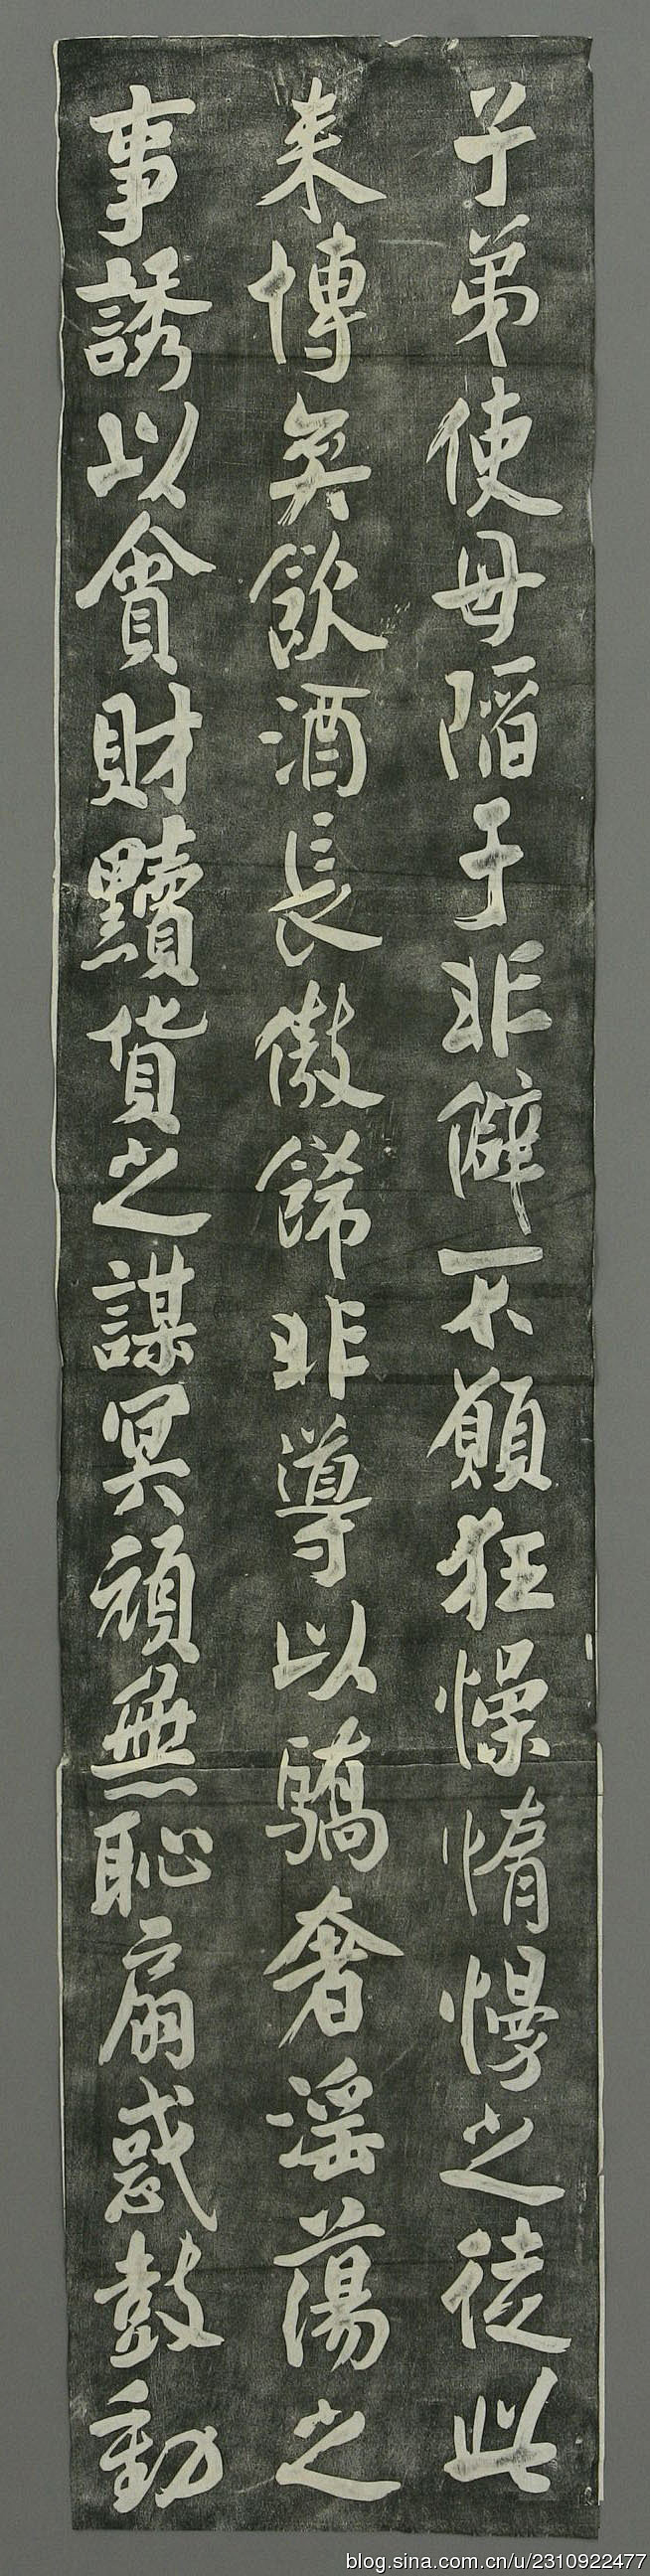 子弟使毋陷于非僻不願狂懆惰慢之徒此
来博奕飲酒長傲飾非導以驕奢淫蕩之
事誘以貪財黷貨之謀冥頑無恥扇惑鼓動
blog.sina.com.cn/u/2310922477